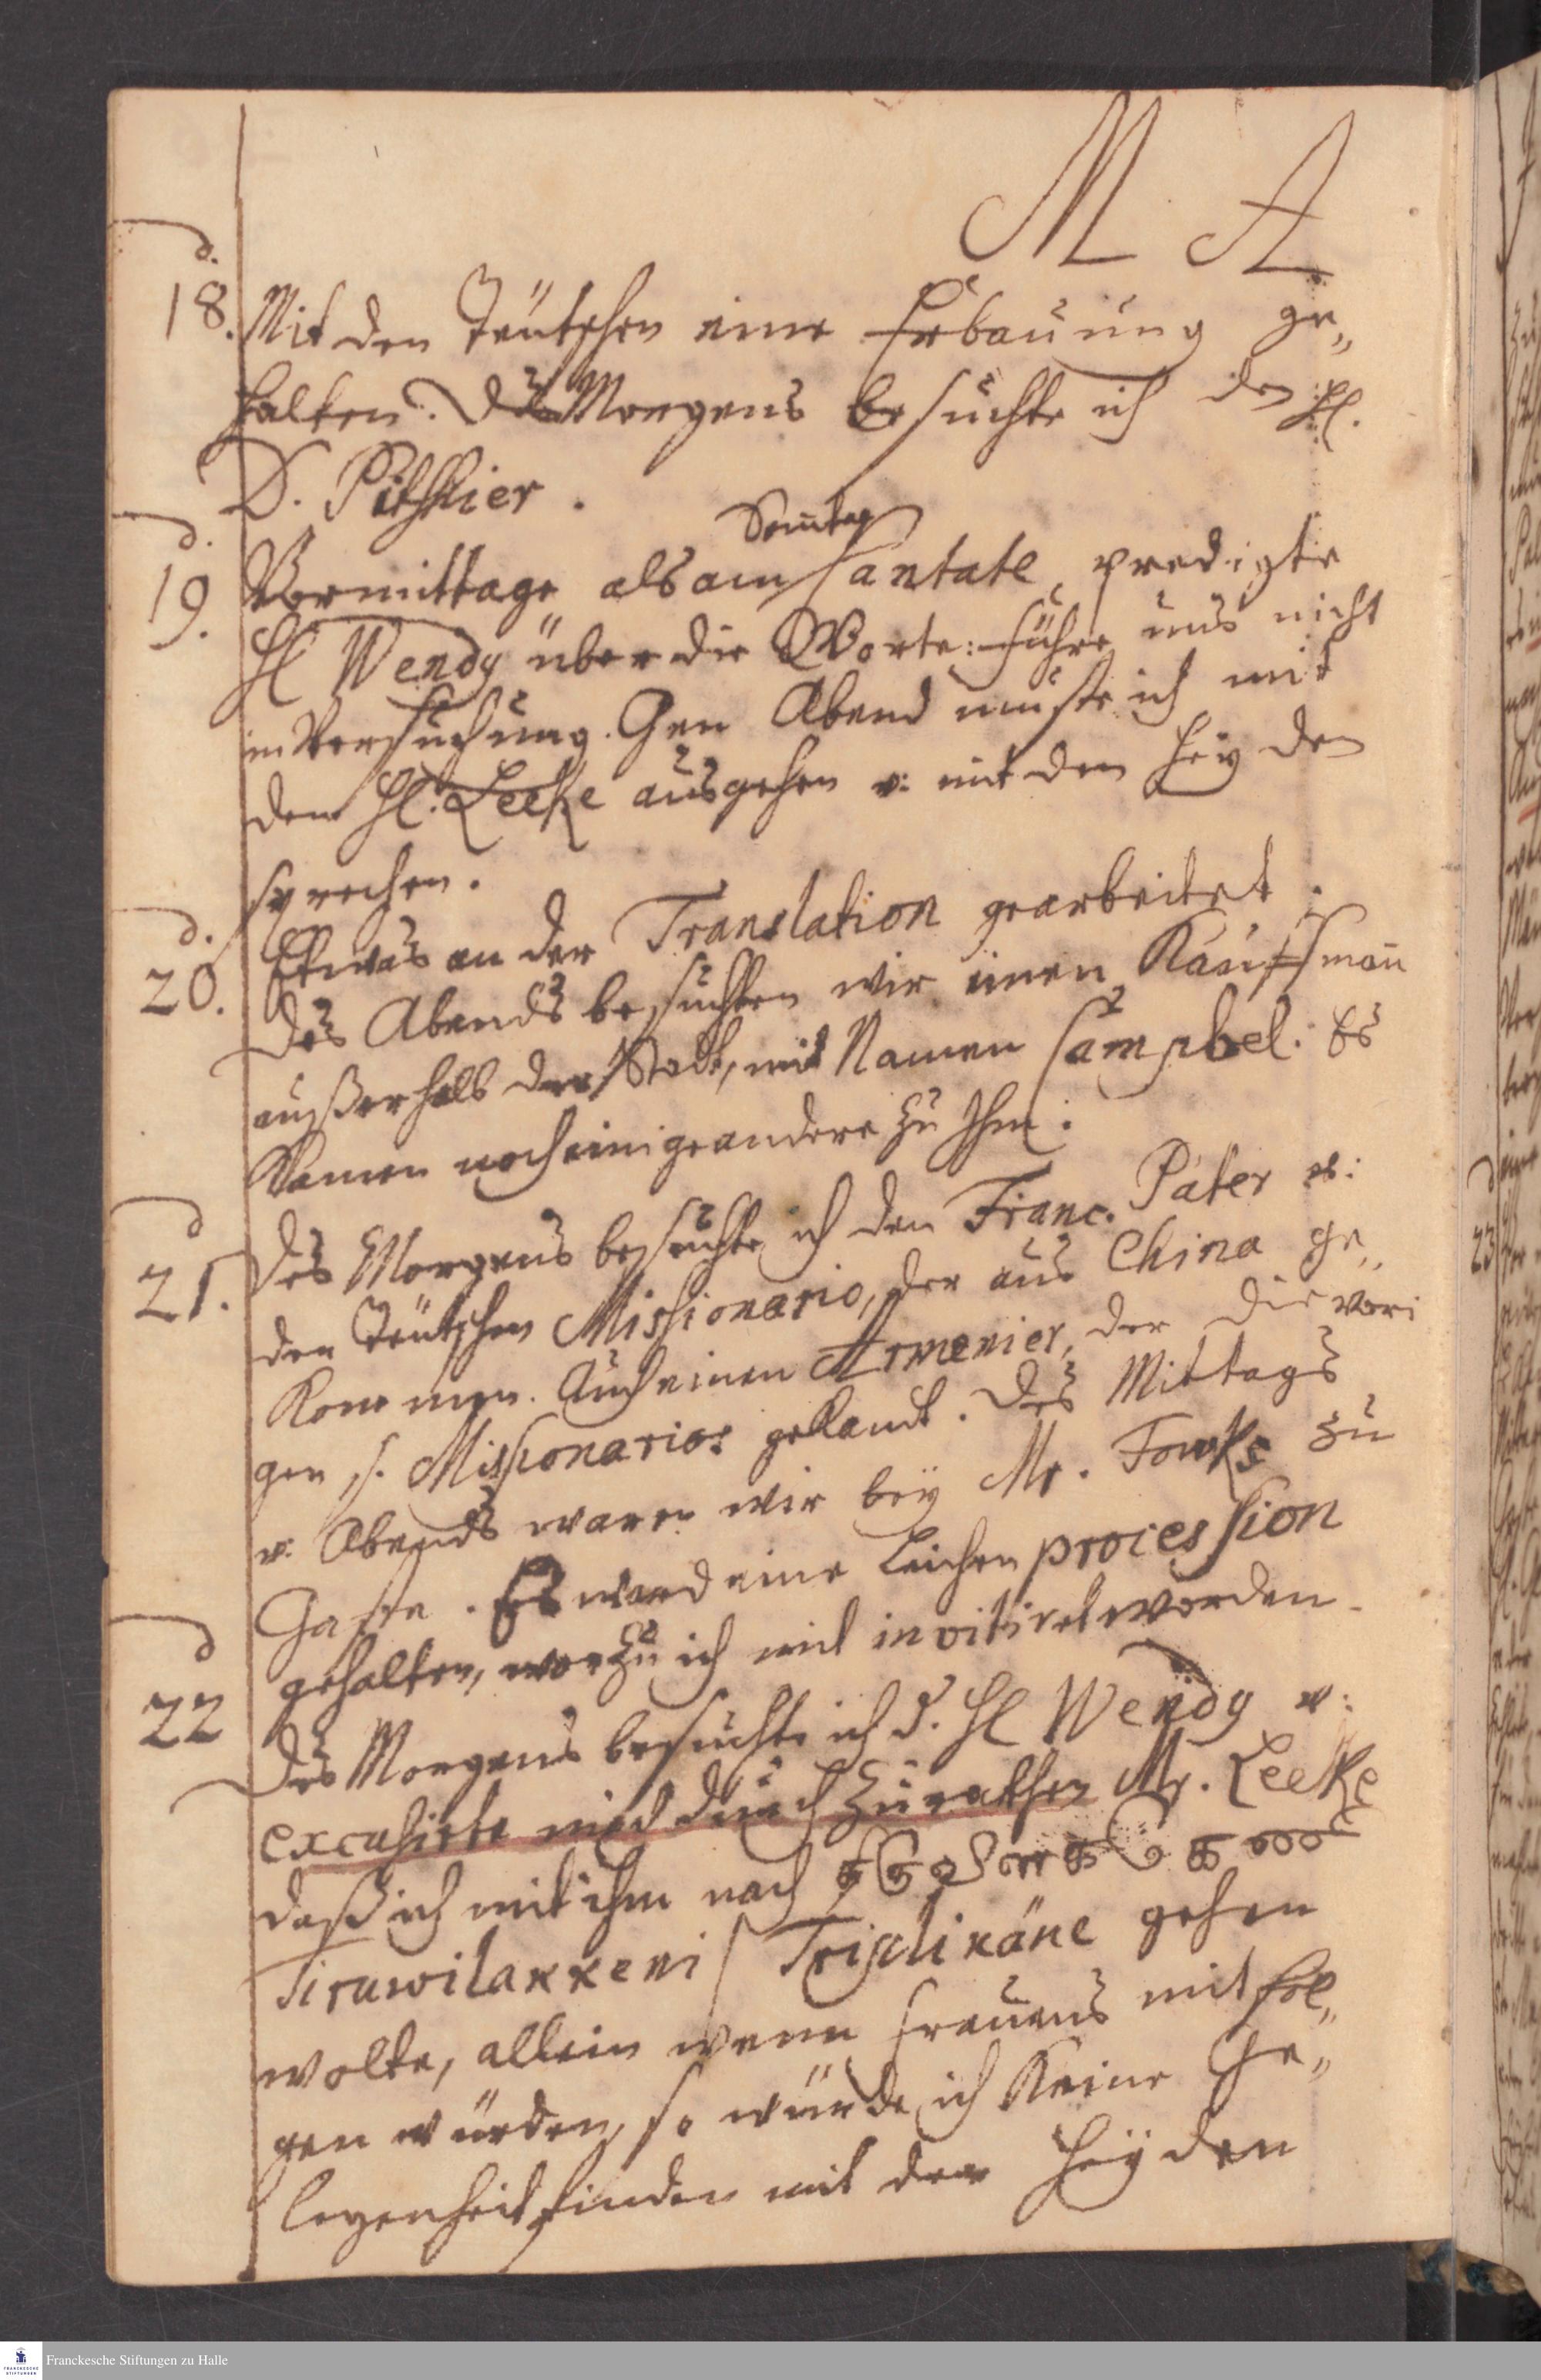 M A
d.
18. Mit den Teütschen eine Erbauung ge„
halten. Des Morgens besuchte ich den H.
D. Pitschier.
d.
19. Vormittage als am Sonntag Cantate, predigte
H Wendy über die Worte: führe uns nicht
in Versuchung. Gen Abend muste ich mit
dem H. Leeke ausgehen u: mit den Heyden
sprechen.
d.
20. Etwas an der Translation gearbeitet.
Des Abends besuchten wir einen Kauffman̄
außerhalb der Stadt, mit Namen Campbel. Es
Kamen noch einige andere zu Ihm.
d
21. Des Morgens besuchte ich den Franc. Pater u:
den Teütschen Missionario, der aus China ge„
Kommen. Auch einen Armenier, der die vori
gen H. Missionarios gekandt. Des Mittags
u: Abends waren wir bey Mr. Fowks zu
Gaste. Es ward eine Leichen procession
gehalten, worzu ich mit invitiret worden.
d
22 Des Morgens besuchte ich d. H Wendy u:
excusirte mich durch Zurathen Mr. Leeke
daß ich mit ihm nach
Tiruwilakkeni / Triplikäne gehen
wolte, allein wenn frauens mit fol„
gen würden, so würde ich Keine Ge„
legenheit finden mit den Heyden
23
Franckesche Stiftungen zu Halle